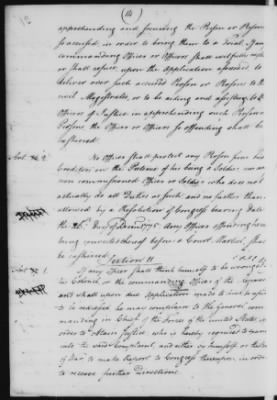 (14)
apprehending and securing the Person or Persons
so accused, in order to bring them to a Trial. If any
commanding Officer or Officers shall wilfully neglect
or shall refuse upon the Application aforesaid to
deliver over such accused Person or Persons to the
civil Magistrates, or to be aiding and assisting to the
Officers of Justice in apprehending such Person or
Persons the Officer or Officers so offending shall be
cashiered.
Art. 2. No Officer shall protect any Person from his
Creditors on the Pretence of his being a Soldier nor any
non commissioned Officer or Soldier who does not
actually do all Duties as such, and no farther than is
allowed by a Resolution of Congress bearing date
the 26th. Day of December 1775. Any Officer offending herein
being convicted thereof before a Court Martial shall
be cashiered.
Section 11
Art. 1. If any Officer shall think himself to be wronged by
his Colonel, or the commanding Officer of the regiment
and shall upon due Application made to him be refused
to be redressed he may complain to the General com-
manding in Chief of the Forces of the united States, in
order to obtain Justice, who is hereby required to exam-
ine into said Complaint and either by himself or the Board
of War to make Report to Congress thereupon, in order
to receive further Directions.